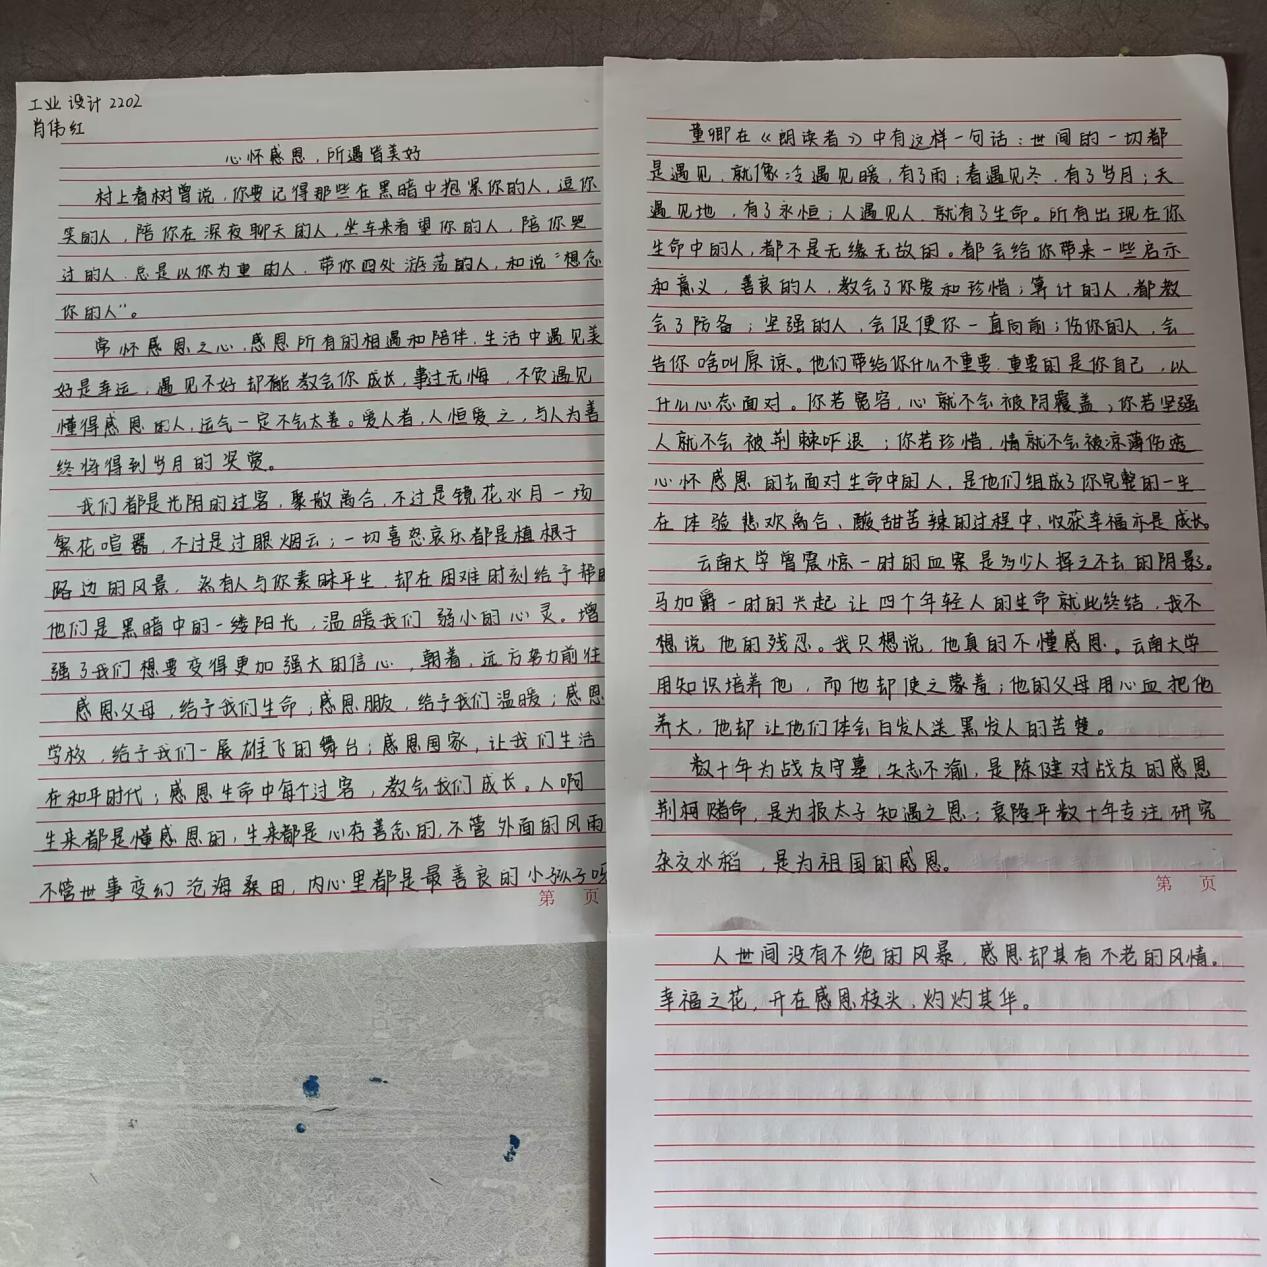 工业设计2202
肖伟红
心怀感恩，所遇皆美好
村上春树曾说，你要记得那些在黑暗中抱紧你的人，逗你
笑的人，陪你在深夜聊天的人，坐车来看望你的人，陪你哭
过的人，总是以你为重的人，带你四处游荡的人，和说“想念
你的人”。
常怀感恩之心，感恩所有的相遇和陪伴，生活中遇见美
好是幸运，遇见不好却能教会你成长，事过无悔，不负遇见
懂得感恩的人，运气一定不会太差。爱人者，人恒爱之，与人为善
终将得到岁月的奖赏。
我们都是光阴的过客，聚散离合，不过是镜花水月一场
繁花喧嚣，不过是过眼烟云；一切喜怒哀乐都是植根于
路边的风景，然有人与你素昧平生，却在困难时刻给予帮
他们是黑暗中的一缕阳光，温暖我们弱小的心灵。增
强了我们想要变得更加强大的信心，朝着，远方努力前往
感恩父母，给予我们生命，感恩朋友，给予我们温暖；感恩
学校，给予我们一展雄飞的舞台；感恩国家，让我们生活
在和平时代；感恩生命中每个过客，教会我们成长。人啊
生来都是懂感恩的，生来都是心存善念的，不管外面的风雨
不管世事变幻沧海桑田，内心里都是最善良的小孩子
第 页
董卿在《朗读者》中有这样一句话：世间的一切都
是遇见，就像冷遇见暖，有了雨；春遇见冬，有了岁月；天
遇见地，有了永恒；人遇见人，就有了生命。所有出现在你
生命中的人，都不是无缘无故的。都会给你带来一些启示
和意义，善良的人，教会了你爱和珍惜；算计的人，都教
会了防备；坚强的人，会促使你一直向前；伤你的人，会
告你啥叫原谅。他们带给你什么不重要，重要的是你自己，以
什么心态面对。你若宽容，心就不会被阴霾覆盖，你若坚强
人就不会被荆棘吓退；你若珍惜，情就不会被凉薄伤透
心怀感恩的去面对生命中的人，是他们组成了你完整的一生
在体验悲欢离合、酸甜苦辣的过程中，收获幸福亦是成长。
云南大学曾震惊一时的血案是多少人挥之不去的阴影。
马加爵一时的兴起让四个年轻人的生命就此终结，我不
想说他的残忍。我只想说，他真的不懂感恩。云南大学
用知识培养他，而他却使之蒙羞；他的父母用心血把他
养大，他却让他们体会白发人送黑发人的苦楚。
数十年为战友守墓，矢志不渝，是陈健对战友的感恩
荆柯赌命，是为报太子知遇之恩；袁隆平数十年专注研究
杂交水稻，是为祖国的感恩。
第 页
人世间没有不绝的风暴，感恩却具有不老的风情。
幸福之花，开在感恩枝头，灼灼其华。